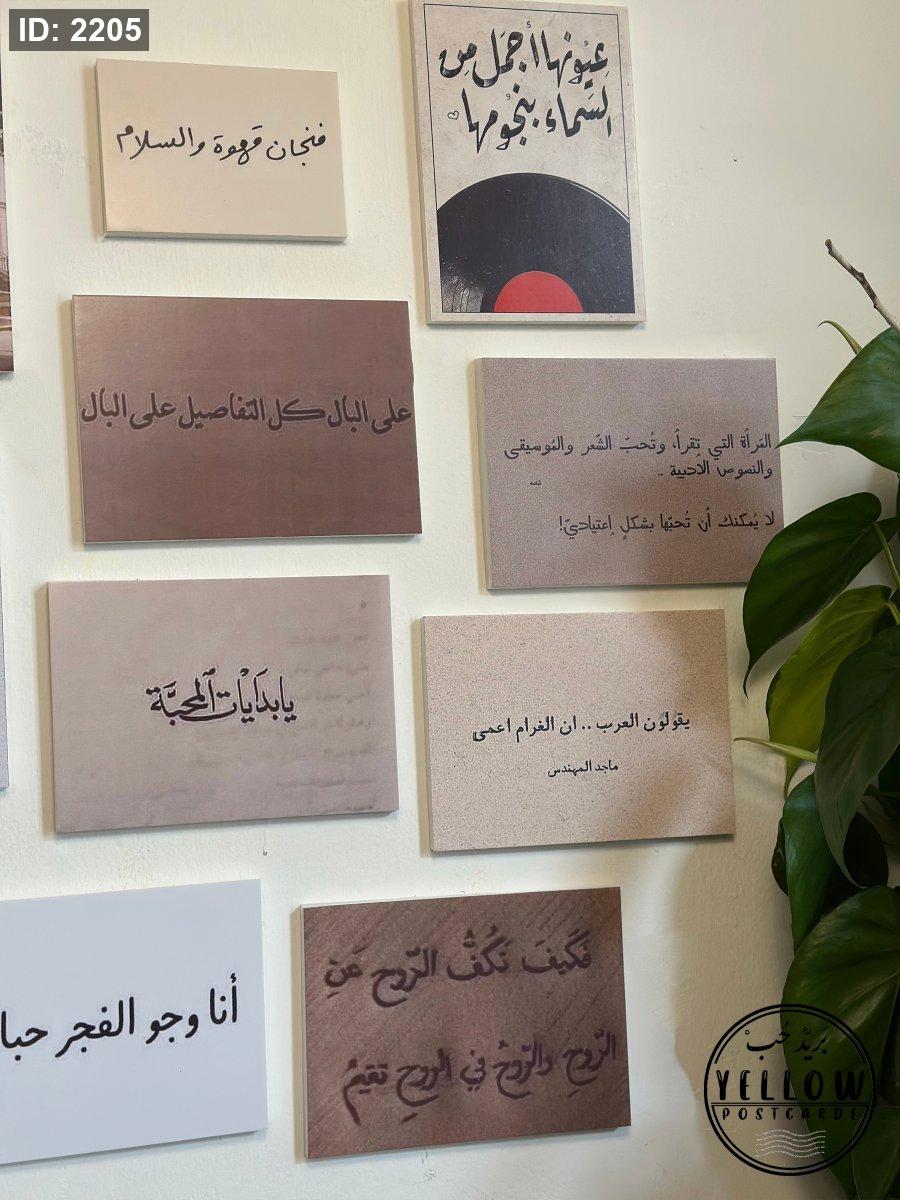 ID: 2205
فنجان قهوة والسلام
عيونها أجمل من
السماء بنجومها
على البال كل التفاصيل على البال
المَرأة التي تقرأ، وتُحبّ الشّعر والمُوسيقى
والنصوص الادبية ..
لا يُمكنك أن تُحبّها بشكلٍ إعتياديّ!
يابدَايات المحبَّة
يقولون العرب .. ان الغرام اعمى
ماجد المهندس
أنا وجو الفجر حبا
فَكَيفَ نَكُفُّ الرّوح عَنِ
الرّوحِ والرّوحُ في الروحِ تقيمُ
بَريدُ حُبْ
YELLOW
POSTCARDE